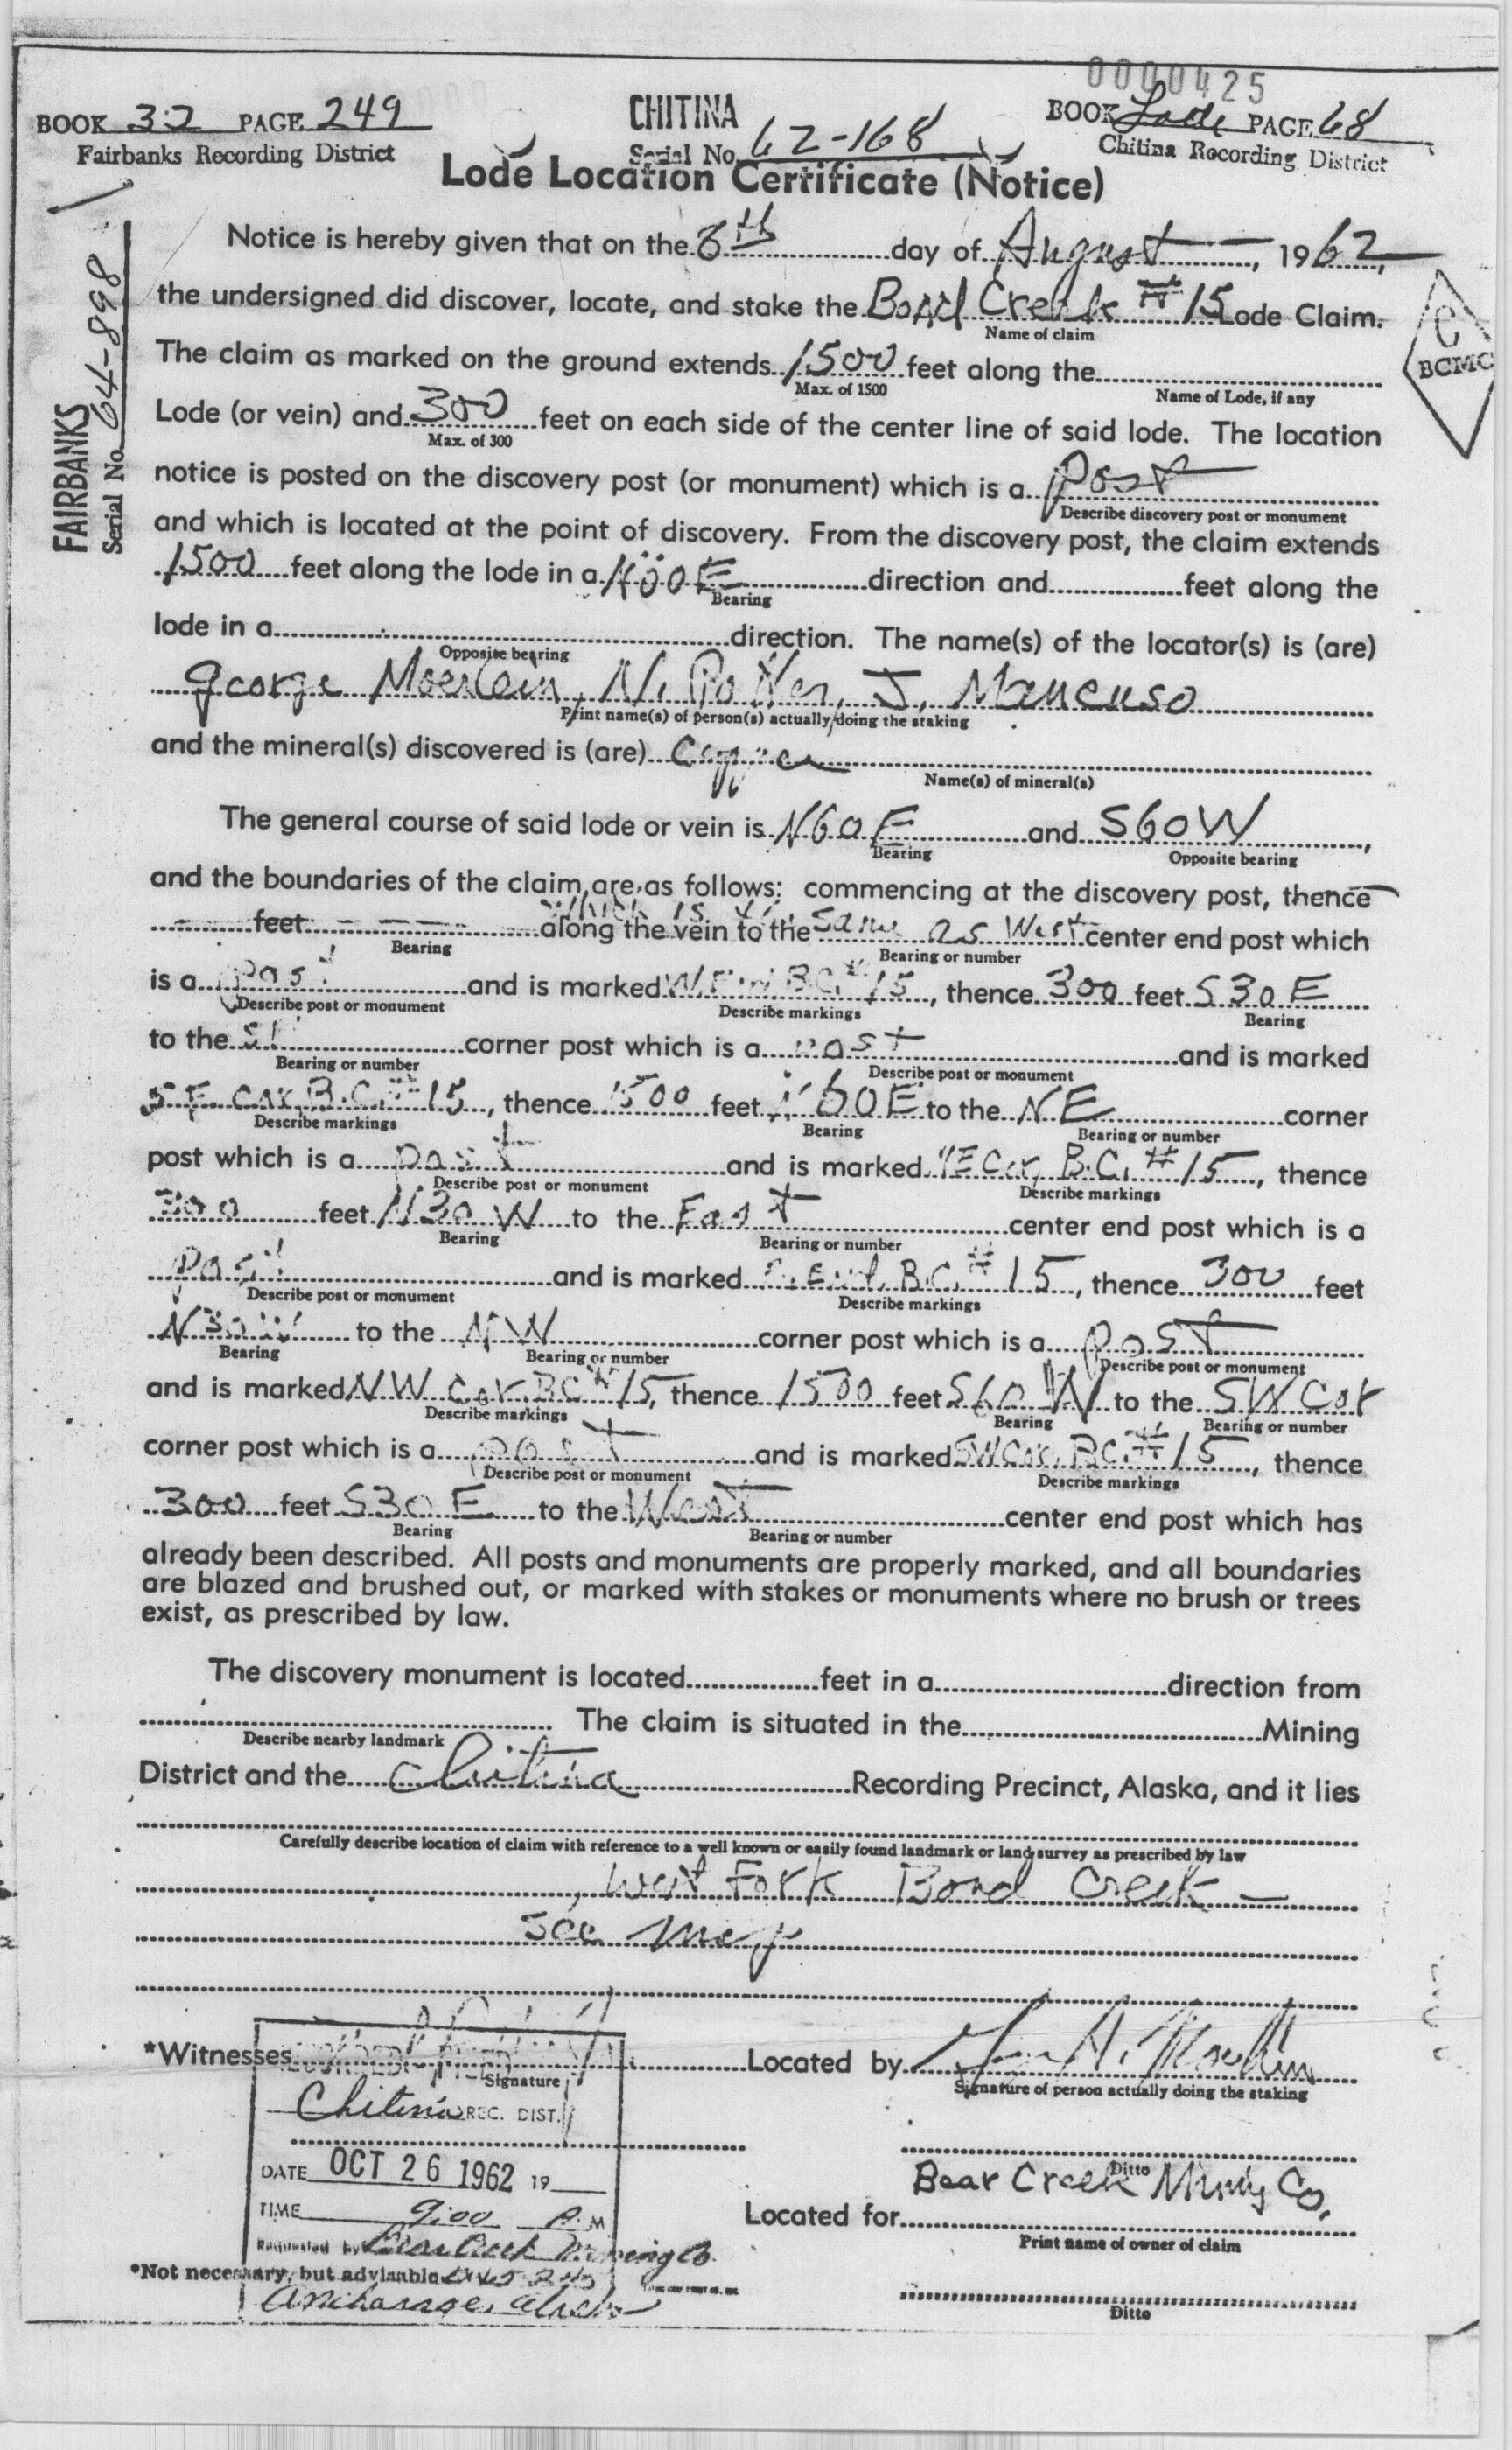 0000425
BOOK 32 PAGE 249
Fairbanks Recording District
CHITINA
Serial No. 62-168
BOOK Lode PAGE 68
Chitina Recording District
Lode Location Certificate (Notice)
FAIRBANKS
Serial No. 64-898
BCMC
Notice is hereby given that on the 8th day of August, 1962,
the undersigned did discover, locate, and stake the Bond Creek #15 Lode Claim.
Name of claim
The claim as marked on the ground extends 1500 feet along the
Max. of 1500 Name of Lode, if any
Lode (or vein) and 300 feet on each side of the center line of said lode. The location
Max. of 300
notice is posted on the discovery post (or monument) which is a Post
Describe discovery post or monument
and which is located at the point of discovery. From the discovery post, the claim extends
1500 feet along the lode in a direction and feet along the
Bearing
lode in a direction. The name(s) of the locator(s) is (are)
Opposite bearing
George Moerlein, N. J. Mancuso
Print name(s) of person(s) actually doing the staking
and the mineral(s) discovered is (are) Copper
Name(s) of mineral(s)
The general course of said lode or vein is N60E and S60W,
Bearing Opposite bearing
and the boundaries of the claim are as follows: commencing at the discovery post, thence
which is the
feet along the vein to the same as West center end post which
Bearing Bearing or number
is a post and is marked W. End B.C. #15, thence 300 feet S30E
Describe post or monument Describe markings Bearing
to the corner post which is a post and is marked
Bearing or number Describe post or monument
S.E. Cor. B.C. #15, thence 1500 feet N60E to the NE corner
Describe markings Bearing Bearing or number
post which is a post and is marked NE Cor. B.C. #15, thence
Describe post or monument Describe markings
300 feet N30W to the East center end post which is a
Bearing Bearing or number
post and is marked E. End. B.C. #15, thence 300 feet
Describe post or monument Describe markings
N30W to the NW corner post which is a post
Bearing Bearing or number Describe post or monument
and is marked NW Cor. B.C. #15, thence 1500 feet S60W to the SW Cor
Describe markings Bearing Bearing or number
corner post which is a post and is marked SW Cor. B.C. #15, thence
Describe post or monument Describe markings
300 feet S30E to the West center end post which has
Bearing Bearing or number
already been described. All posts and monuments are properly marked, and all boundaries
are blazed and brushed out, or marked with stakes or monuments where no brush or trees
exist, as prescribed by law.
The discovery monument is located feet in a direction from
The claim is situated in the Mining
Describe nearby landmark
District and the Chitina Recording Precinct, Alaska, and it lies
Carefully describe location of claim with reference to a well known or easily found landmark or land survey as prescribed by law
West Fork Bond Creek
See map
*Witnesses Located by
Signature Signature of person actually doing the staking
Chitina REC. DIST.
DATE OCT 26 1962 19
Ditto
TIME 9:00 M
Located for Bear Creek Mining Co.
Print name of owner of claim
Requested by Bear Creek Mining Co.
*Not necessary, but advisable
Anchorage, Alaska
Ditto